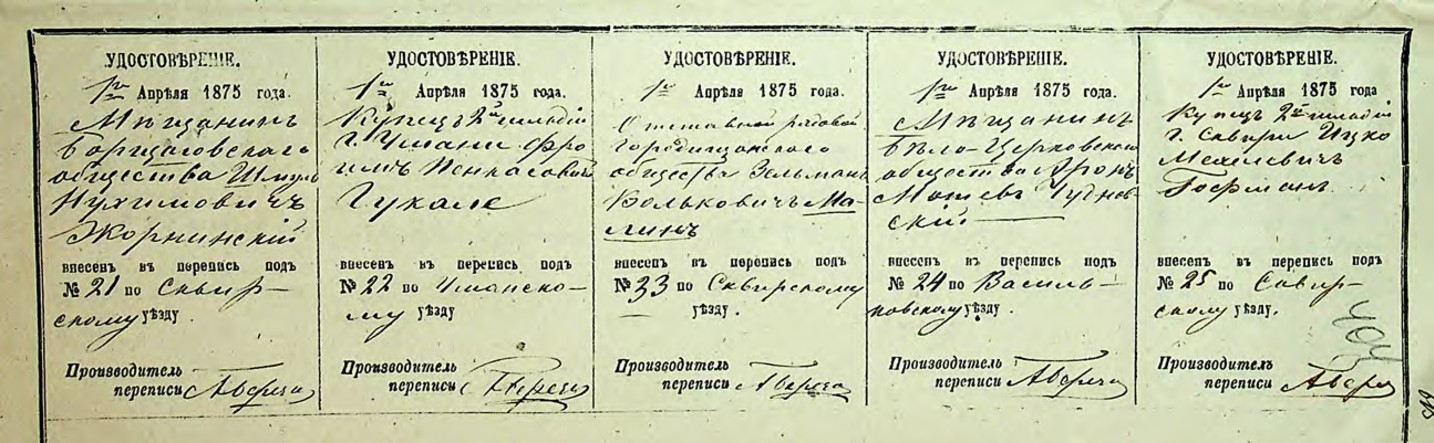 УДОСТОВѢРЕНІЕ.
1го Апрѣля 1875 года.
Мѣщанинъ
Борщаговскаго
общества Шмуль
Нухимовичъ
внесенъ въ перепись подъ
№ 21 по Сквир-
скому уѣзду.
Производитель
переписи
УДОСТОВѢРЕНІЕ.
1го Апрѣля 1875 года.
Купецъ 2й гильдіи
г. Умани Фро
имъ
внесенъ въ перепись подъ
№ 22 по Уманско-
му уѣзду
Производитель
переписи
УДОСТОВѢРЕНІЕ.
1го Апрѣля 1875 года.
Отставной рядовой
Городищанскаго
общества Зельманъ
Вольковичъ Ма-
линъ
внесенъ въ перепись подъ
№ 23 по Сквирскому
уѣзду.
Производитель
переписи
УДОСТОВѢРЕНІЕ.
1го Апрѣля 1875 года.
Мѣщанинъ
Бѣло-Церковскаго
общества Аронъ
Мошевъ Чуднов-
скій
внесенъ въ перепись подъ
№ 24 по Василь-
ковскому уѣзду.
Производитель
переписи
УДОСТОВѢРЕНІЕ.
1го Апрѣля 1875 года
Купецъ 2й гильдіи
г. Сквиры Ицко
Мехелевичъ
Гофманъ
внесенъ въ перепись подъ
№ 25 по Сквир-
скому уѣзду.
Производитель
переписи